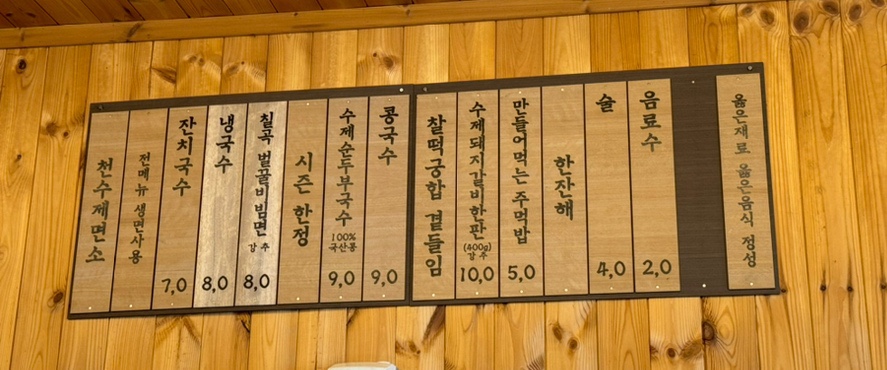 천수제면소
전메뉴 생면사용
잔치국수 7,0
냉국수 8,0
칠곡 벌꿀비빔면 강추 8,0
시즌 한정
수제순두부국수 100% 국산콩 9,0
콩국수 9,0
찰떡궁합 곁들임
수제돼지갈비한판 (400g) 강추 10,0
만들어먹는 주먹밥 5,0
한잔해
술 4,0
음료수 2,0
옳은재료 옳은음식 정성